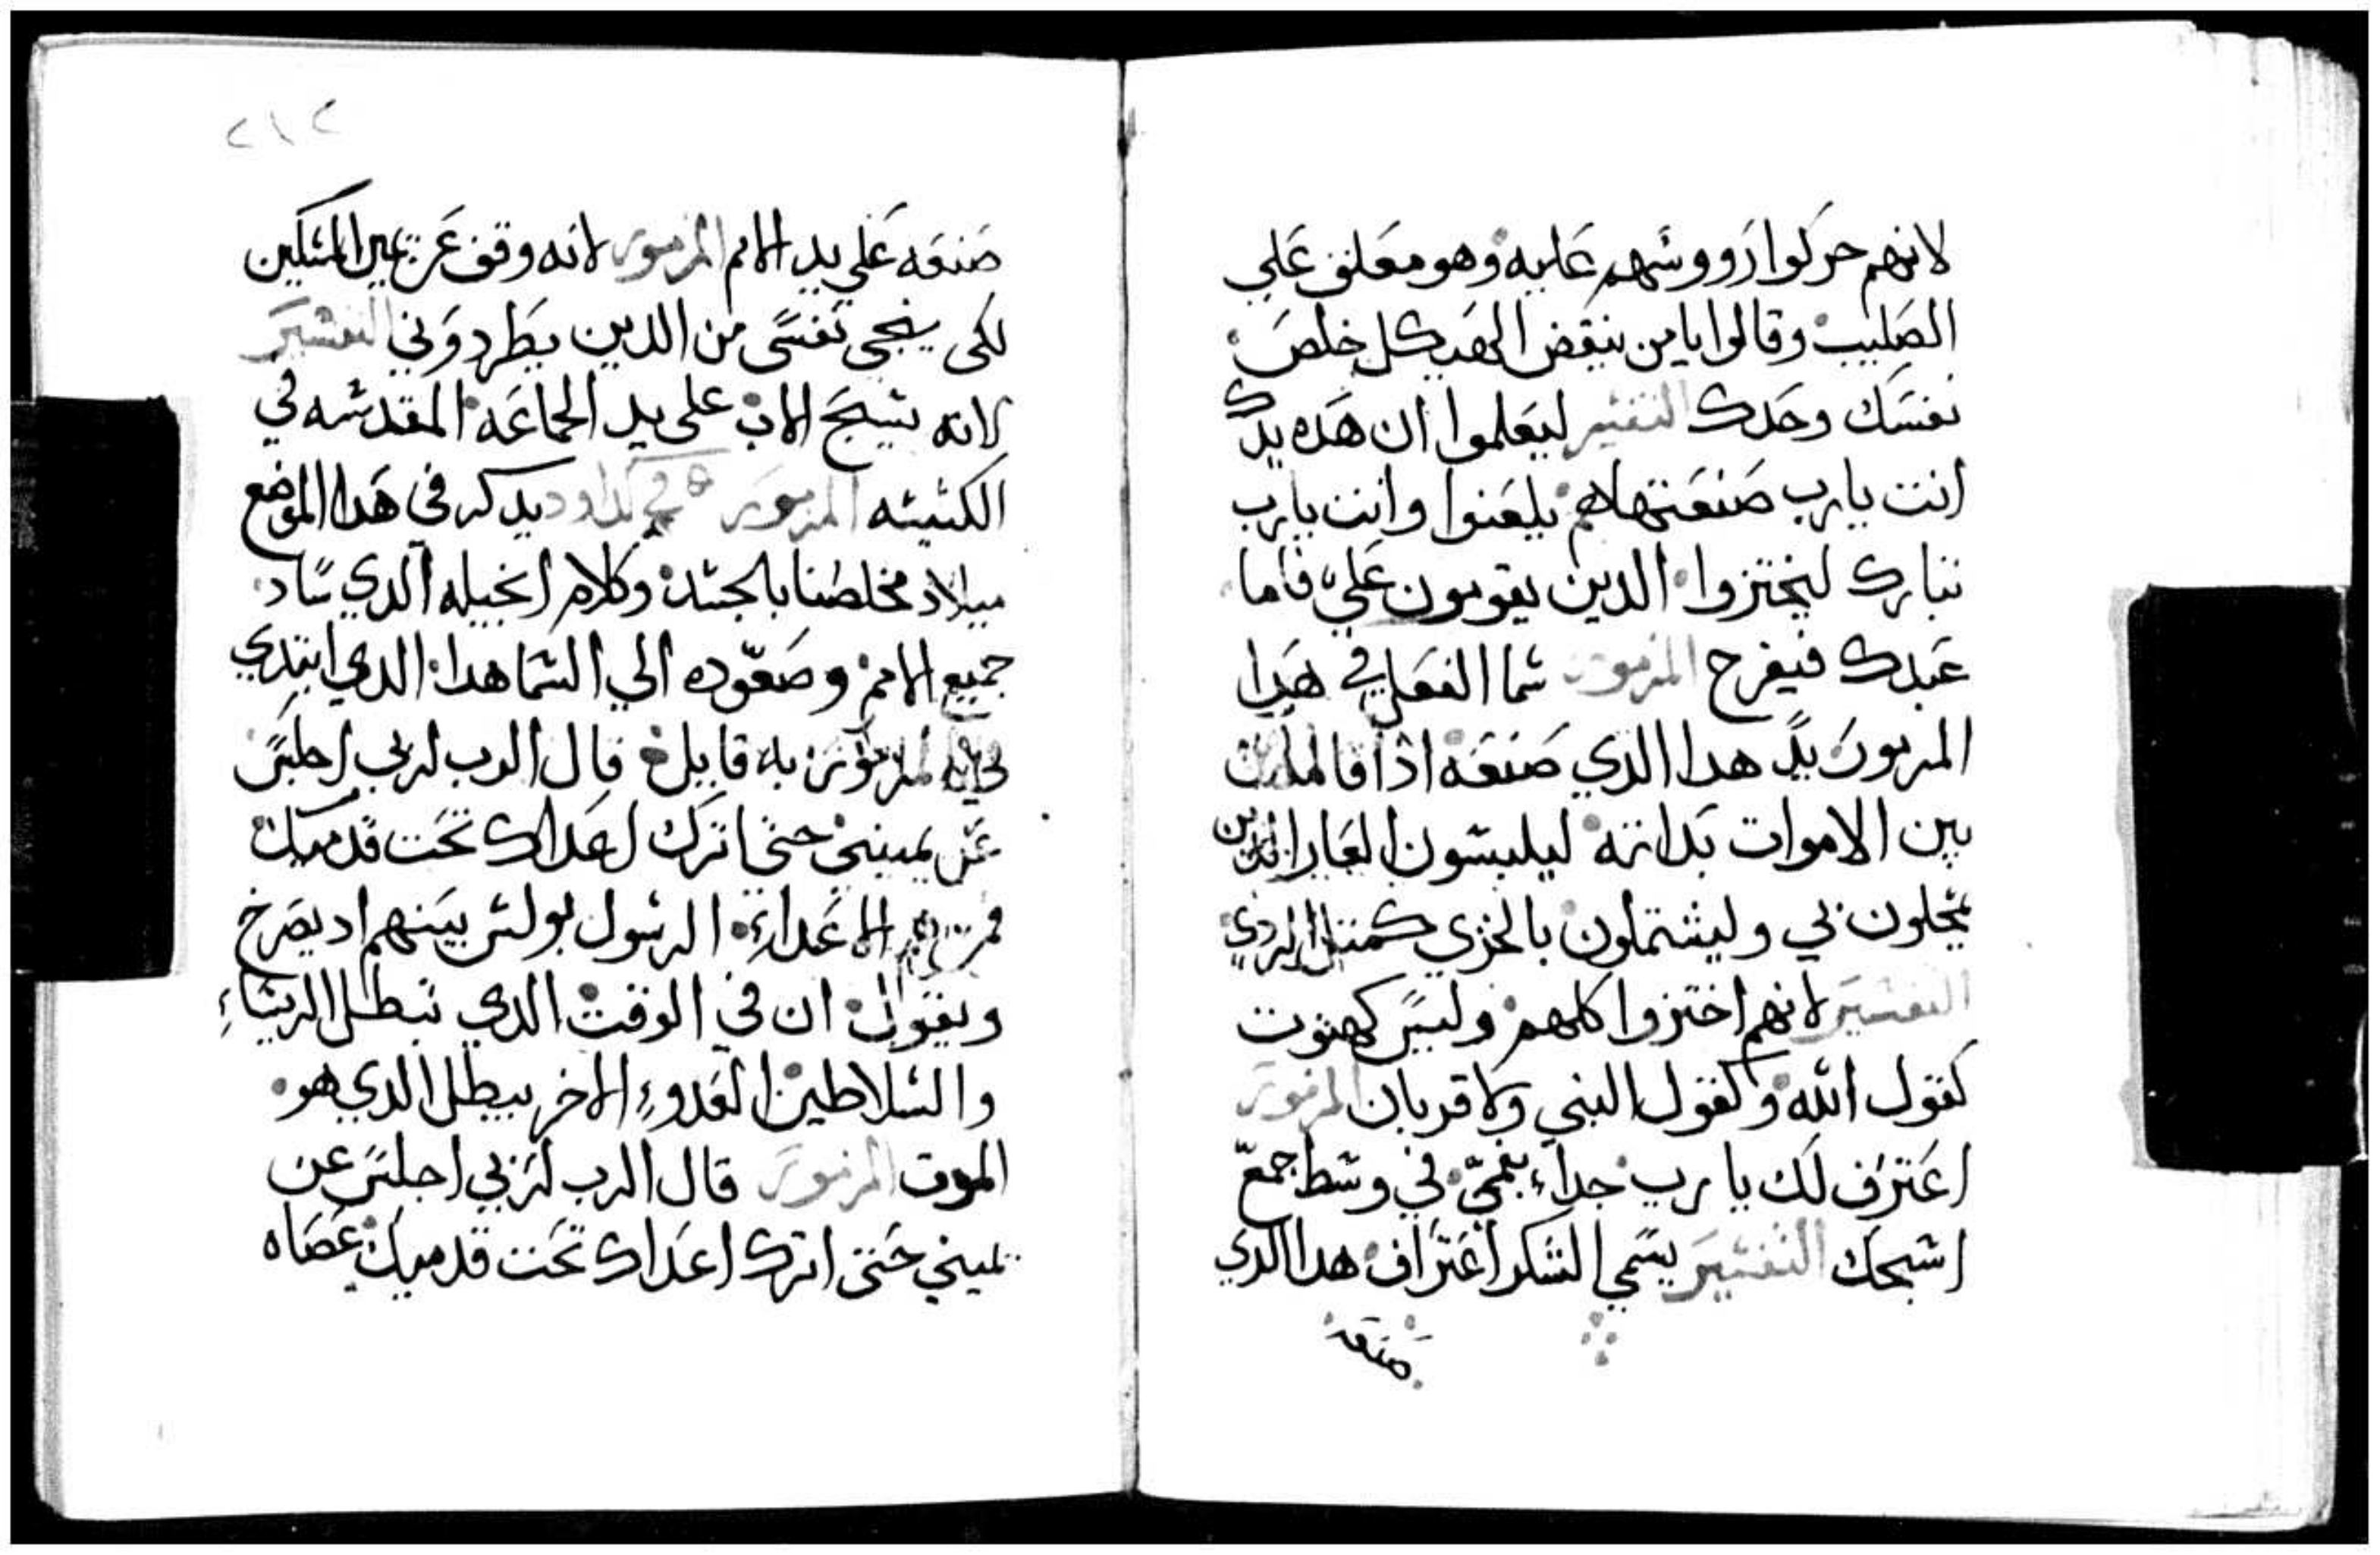 لانهم حركوا رووسهم عليه وهو معلق علي
الصليب وقالوا يامن ينقض الهيكل خلص
نفسك وحدك التفسير ليعلموا ان هده يدك
انت يارب صنعتها هم يلعنوا وانت يارب
تبارك ليختزوا الدين يقومون علي فاما
عبدك فيفرح المزمور سما الفعل في هدا
المزمور يد هدا الدي صنعه ادا قا
بين الاموات بداته ليلبسون العار الدين
يمحلون بي وليشتملون بالخزي كمتل الردي
التفسير لانهم اختزوا كلهم وليس كهنوت
كقول الله وكقول النبي ولا قربان المزمور
اعترف لك يا رب جداء بفمي في وسط جمع
اسبحك التفسير يسمي الشكر اعتراف هدا الدي
صنعه
٢١٢
صنعه علي يد الامم المزمور لانه وقف عن يمين المسكين
لكي ينجي نفسي من الدين يطردوني التفسير
لانه يسبح الاب علي يد الجماعه المقدسه في
الكنيسه المزمور لداود يدكر في هدا الموضع
ميلاد مخلصنا بالجسد وكلام انجيله الدي ساد
جميع الامم وصعوده الي السما هدا الدي ابتدي
المزمور به قايلا قال الرب لربي اجلس
عن يميني حتي اترك اعداك تحت قدميك
الاعداء الرسول بولس بينهم اد يصرخ
ويقول ان في الوقت الدي تبطل الريساء
والسلاطين العدوء الاخر يبطل الدي هو
الموت المزمور قال الرب لربي اجلس عن
يميني حتي اترك اعداك تحت قدميك عصاه